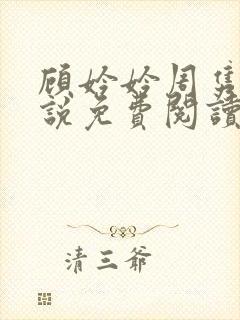 顾姈姈周隽
說免費閱讀
清三爺